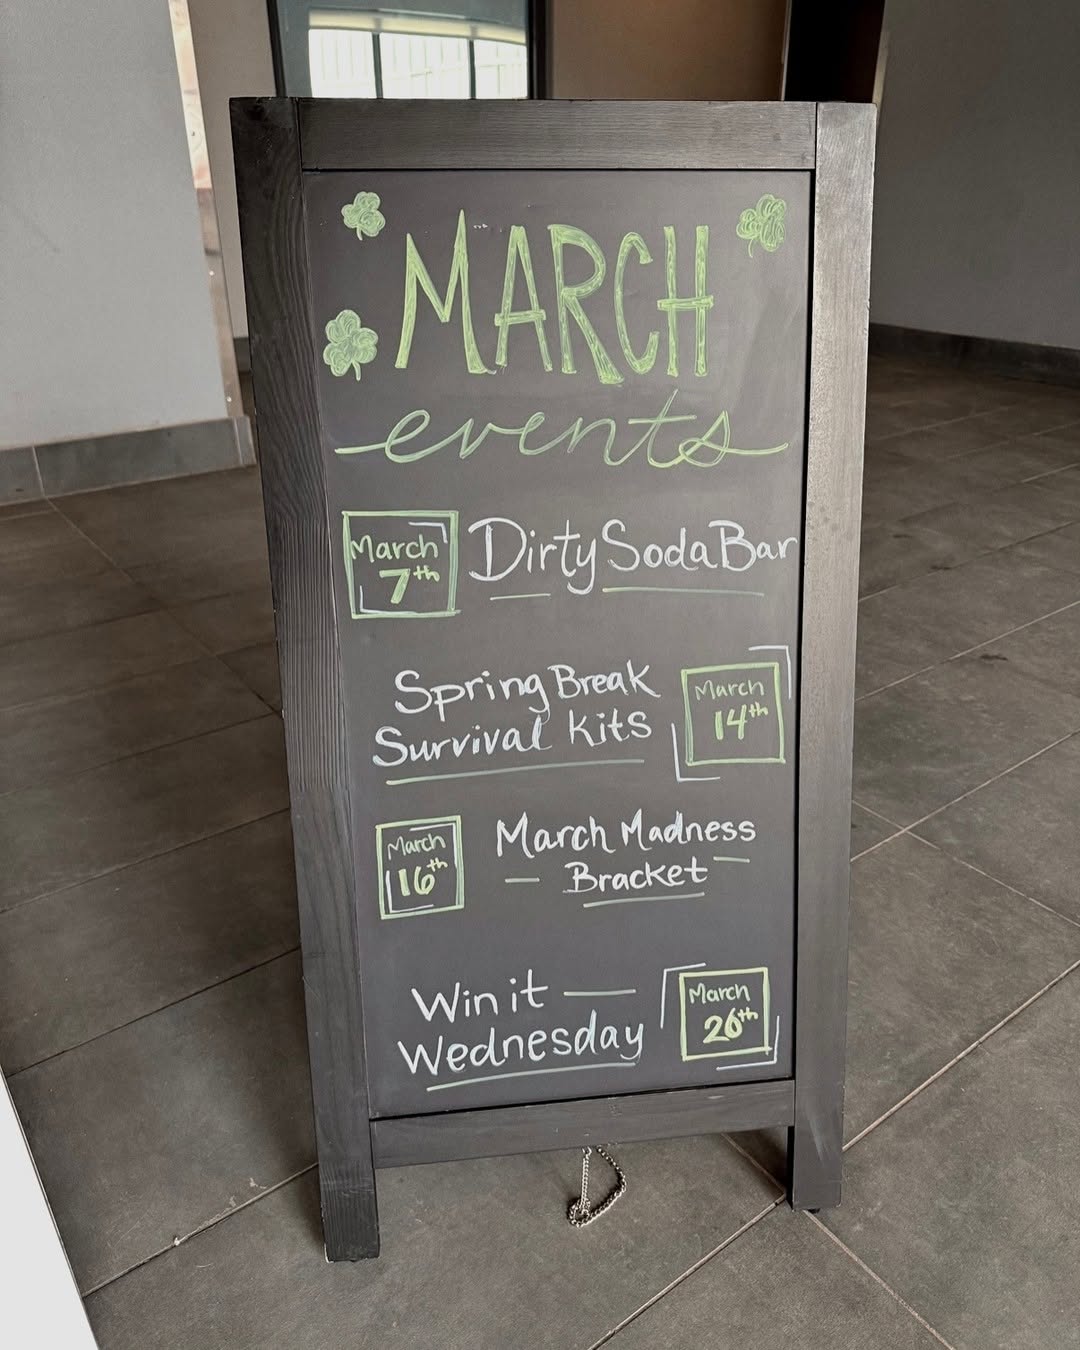 MARCH
events
March
7th
Dirty Soda Bar
Spring Break
Survival Kits
March
14th
March
16th
March Madness
Bracket
Win it
Wednesday
March
26th